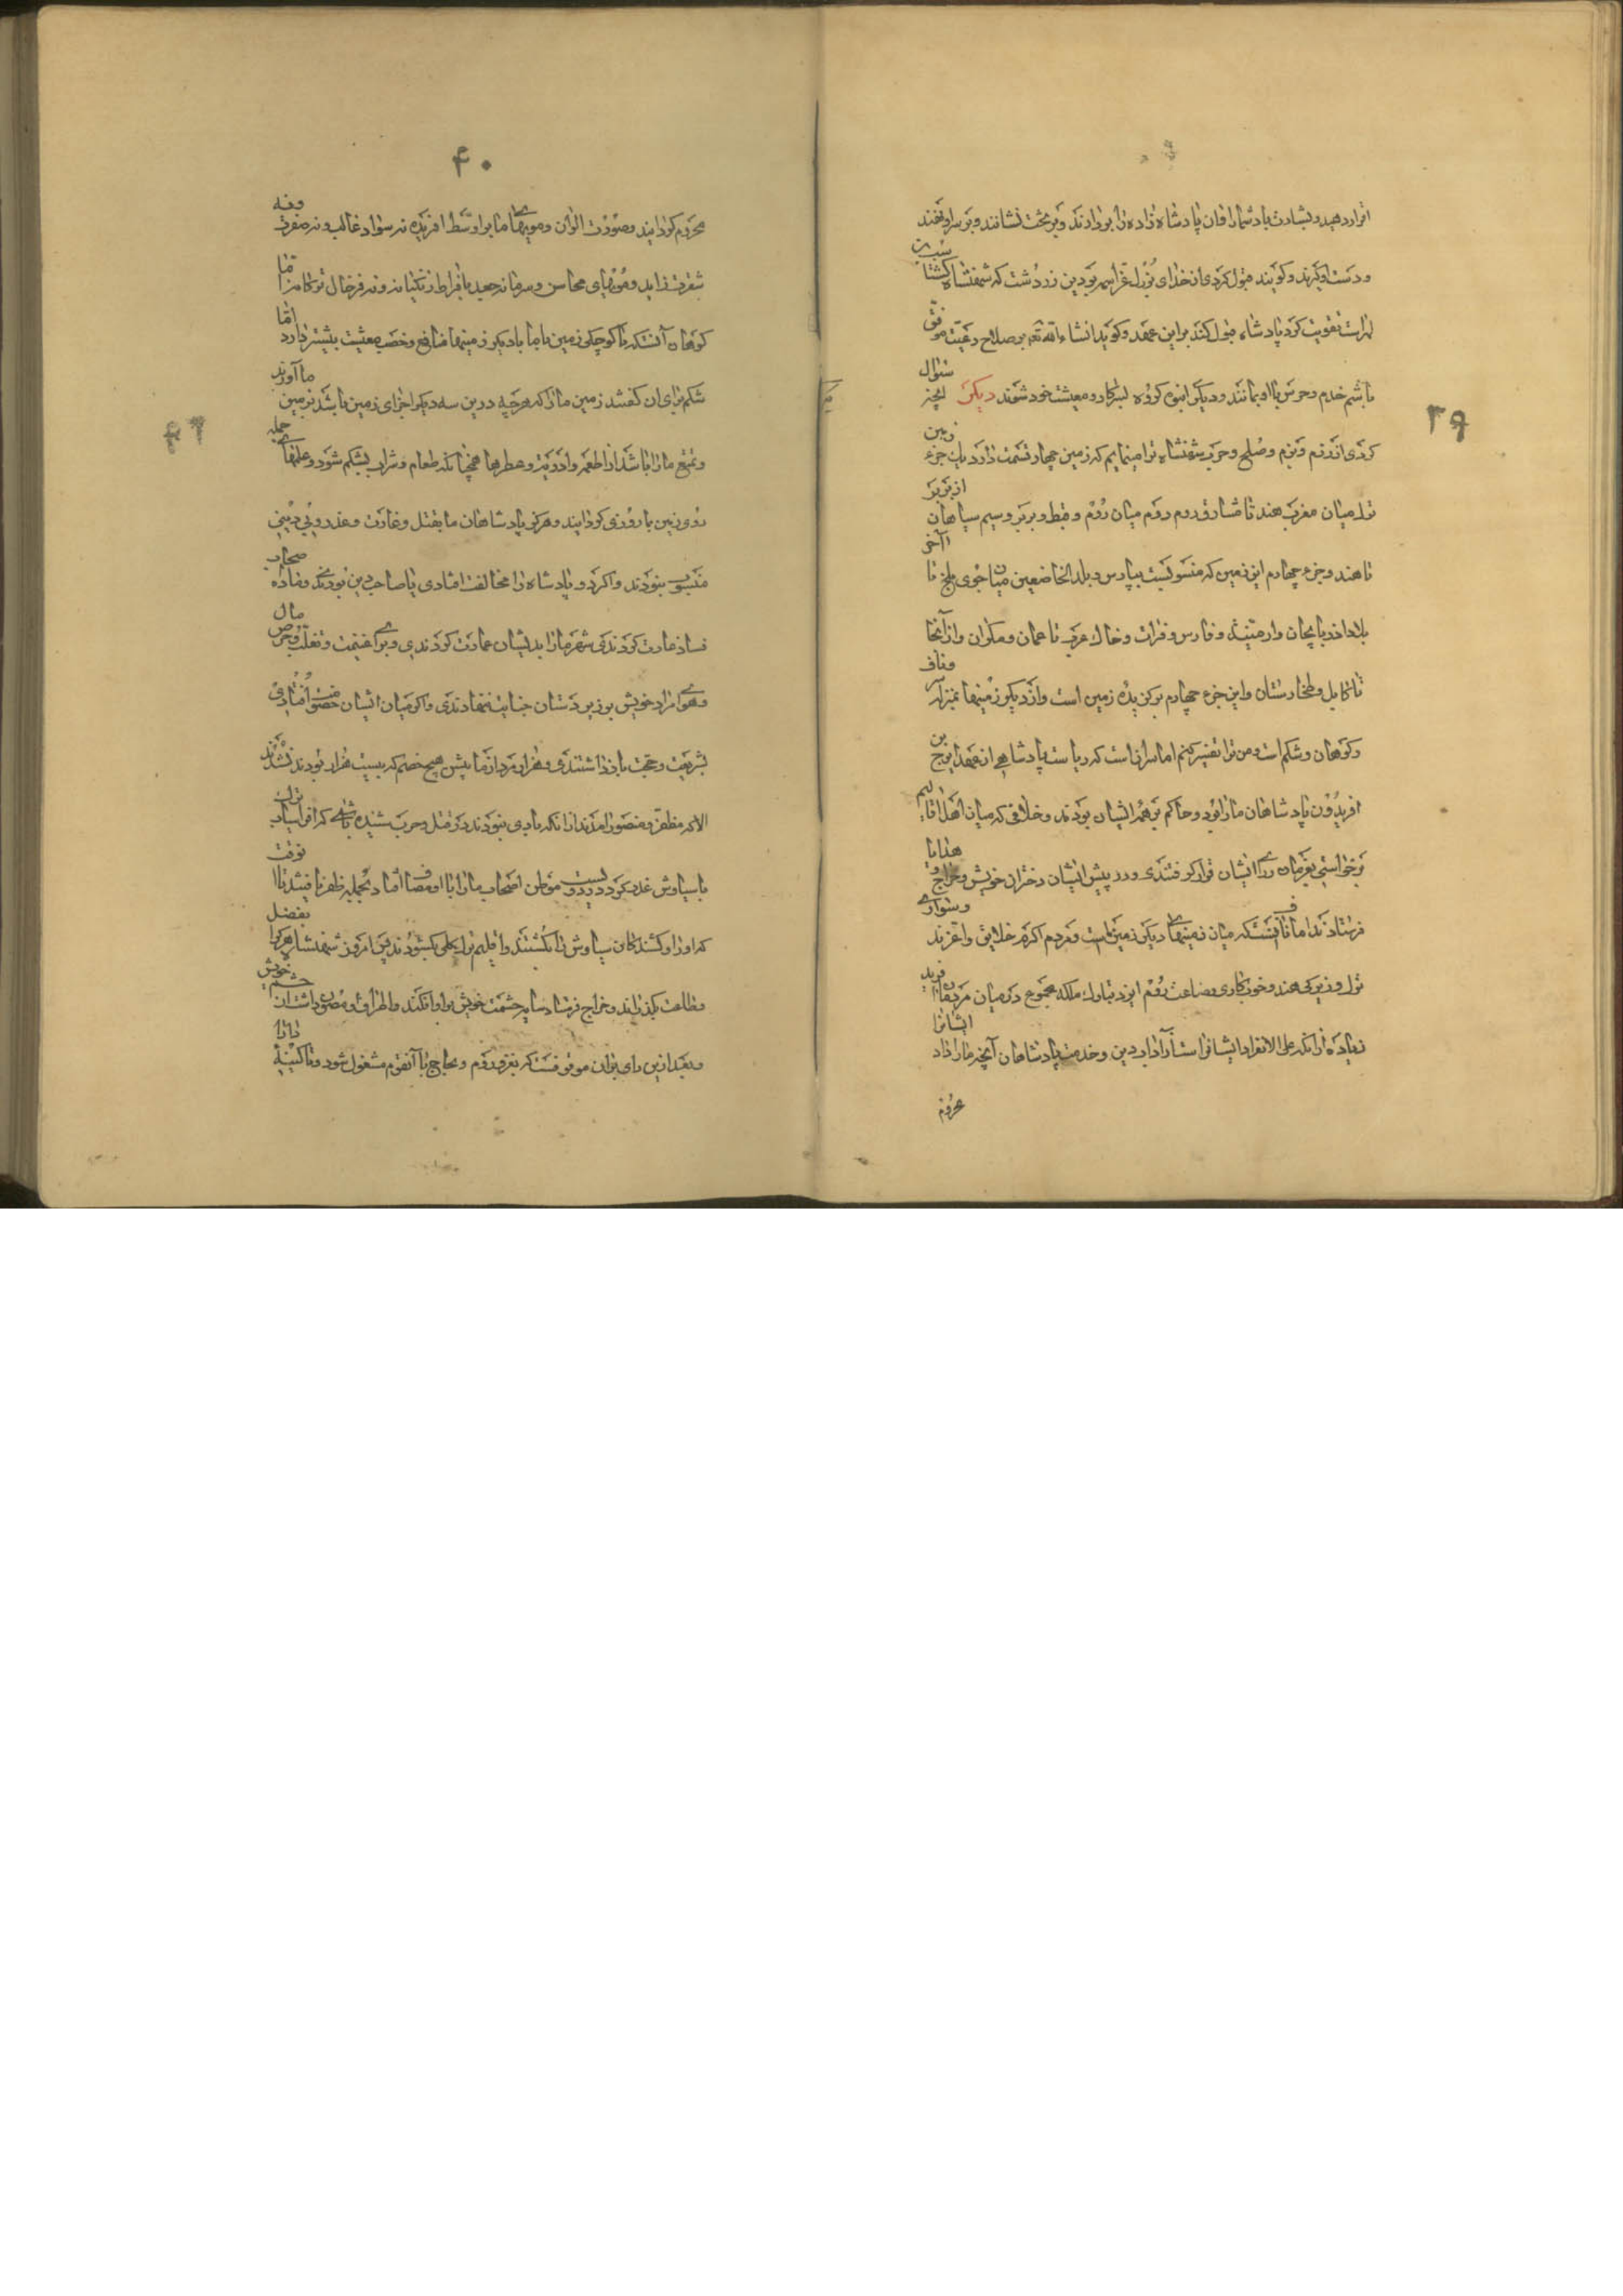 ۳۹
اقرار دهید و بشارت باد شما را و آن پادشاه زاده را بردارند و بر تخت نشانند و بر سر او نهند
و دست او گیرند و گویند قبول کردی از خدای بزرگ عز اسمه بر دین زردشت که شهنشاه گشتاسب بن
لهراسب تقویت کرد پادشاه قبول کند برین عهد و گوید انشاء الله بر صلاح رعیت موفق
باشم خدم و حرس با او بمانند و دیگر انبوه گروه بسر کار و معیشت خود شوند دیگر آنچه سؤال
کردی از رزم و بزم و صلح و حرب شهنشاه ترا مینمایم که زمین چهار قسمت دارد یک جزء زمین
ترک میان مغرب هند تا مشارق روم و دوم میان روم و قبط و بربر و سیم سیاهان از بربر
تا هند و جزء چهارم این زمین که منسوبست بپارس و بلاد الخاضعین میان جوی بلخ تا آخر
بلاد اذربایجان و ارمنیه و فارس و فرات و خاک عرب تا عمان و مکران و از آنجا
تا کابل و طخارستان و این جزء چهارم برگزیده زمین است و از دیگر زمینها بمنزلت سر و ناف
و کوهان و شکم است و من ترا تفسیر کنم اما سر آنست که ریاست پادشاهی از عهد ایرج بن
افریدون پادشاهان ما را بود و حاکم بر همه ایشان بودند و خلافی که میان اهل اقالیم
برخواستی بفرمان و رای ایشان قرار گرفتندی و در پیش ایشان دختران خویش و خراج و هدایا
فرستادند اما ناف آنست که میان زمینهای دیگر زمین ماست و مردم ما اکرم خلایق و اعز و سواری
ترک و زیرکی هند و خوب کاری و صناعت روم ایزد تبارک ملکه مجموع در میان مردمان ما آفرید
زیاده از آنکه علی الانفراد ایشانراست و از آداب دین و خدمت پادشاهان آنچه ما را داد ایشانرا
محروم
۴۰
محروم گردانید و صورت الوان و مویهای ما بر اوسط آفریده نه سواد غالب و نه صفرت و نه
شقرت و مویهای محاسن و سر ما نه جعد بافراط زنگیانه و نه فرخال ترکانه اما
کوهان آنستکه با کوچکی زمین ما با دیگر زمینها منافع و خصب معیشت بیشتر دارد اما
شکم برای آن گفتند زمین ما را که هرچه درین سه دیگر اجزای زمین باشد بزمین ما آورند
و تمتع ما را باشد از اطعمه و ادویه و عطرها همچنانکه طعام و شراب بشکم شود و علمهای جمله
روی زمین ما را روزی گردانید و هرگز پادشاهان ما بقتل و غارت و غدر و بی دینی
منسوب نبودند و اگر دو پادشاه را مخالفت افتادی یا صاحب دین بودند و ماده
فساد عمارت کردندی و برای غنیمت و تغلب و حرص مال
و هوای مراد خویش بر زیردستان جنایت ننهادندی و اگر میان ایشان خصومت افتادی
بشریعت و حجت باز داشتندی و هزار مرد از ما پیش هیچ خصم که بیست هزار بودند نشدند
الا که مظفر و منصور آمدند از آنکه بادی نبودند در قتل و حرب شنیده باشی که افراسیاب ترک
با سیاوش غدر کرد در دویست موطن اصحاب ما را با او مصاف افتاد بجمله ظفر یافتند تا آن وقت
که او را و کشندگان سیاوش را بکشتند و اقلیم ترک بکلی بگشودند پس امروز شهنشاه هرکرا بفضل
و طاعت بگذراند و خراج فرستاد سایه حشمت خویش برو افکند و اطراف او مصون داشت از حشم خویش
و بعد ازین رای بران موقوفست که بغزو روم و لجاج با آنقوم مشغول شود و تا کینه دارا